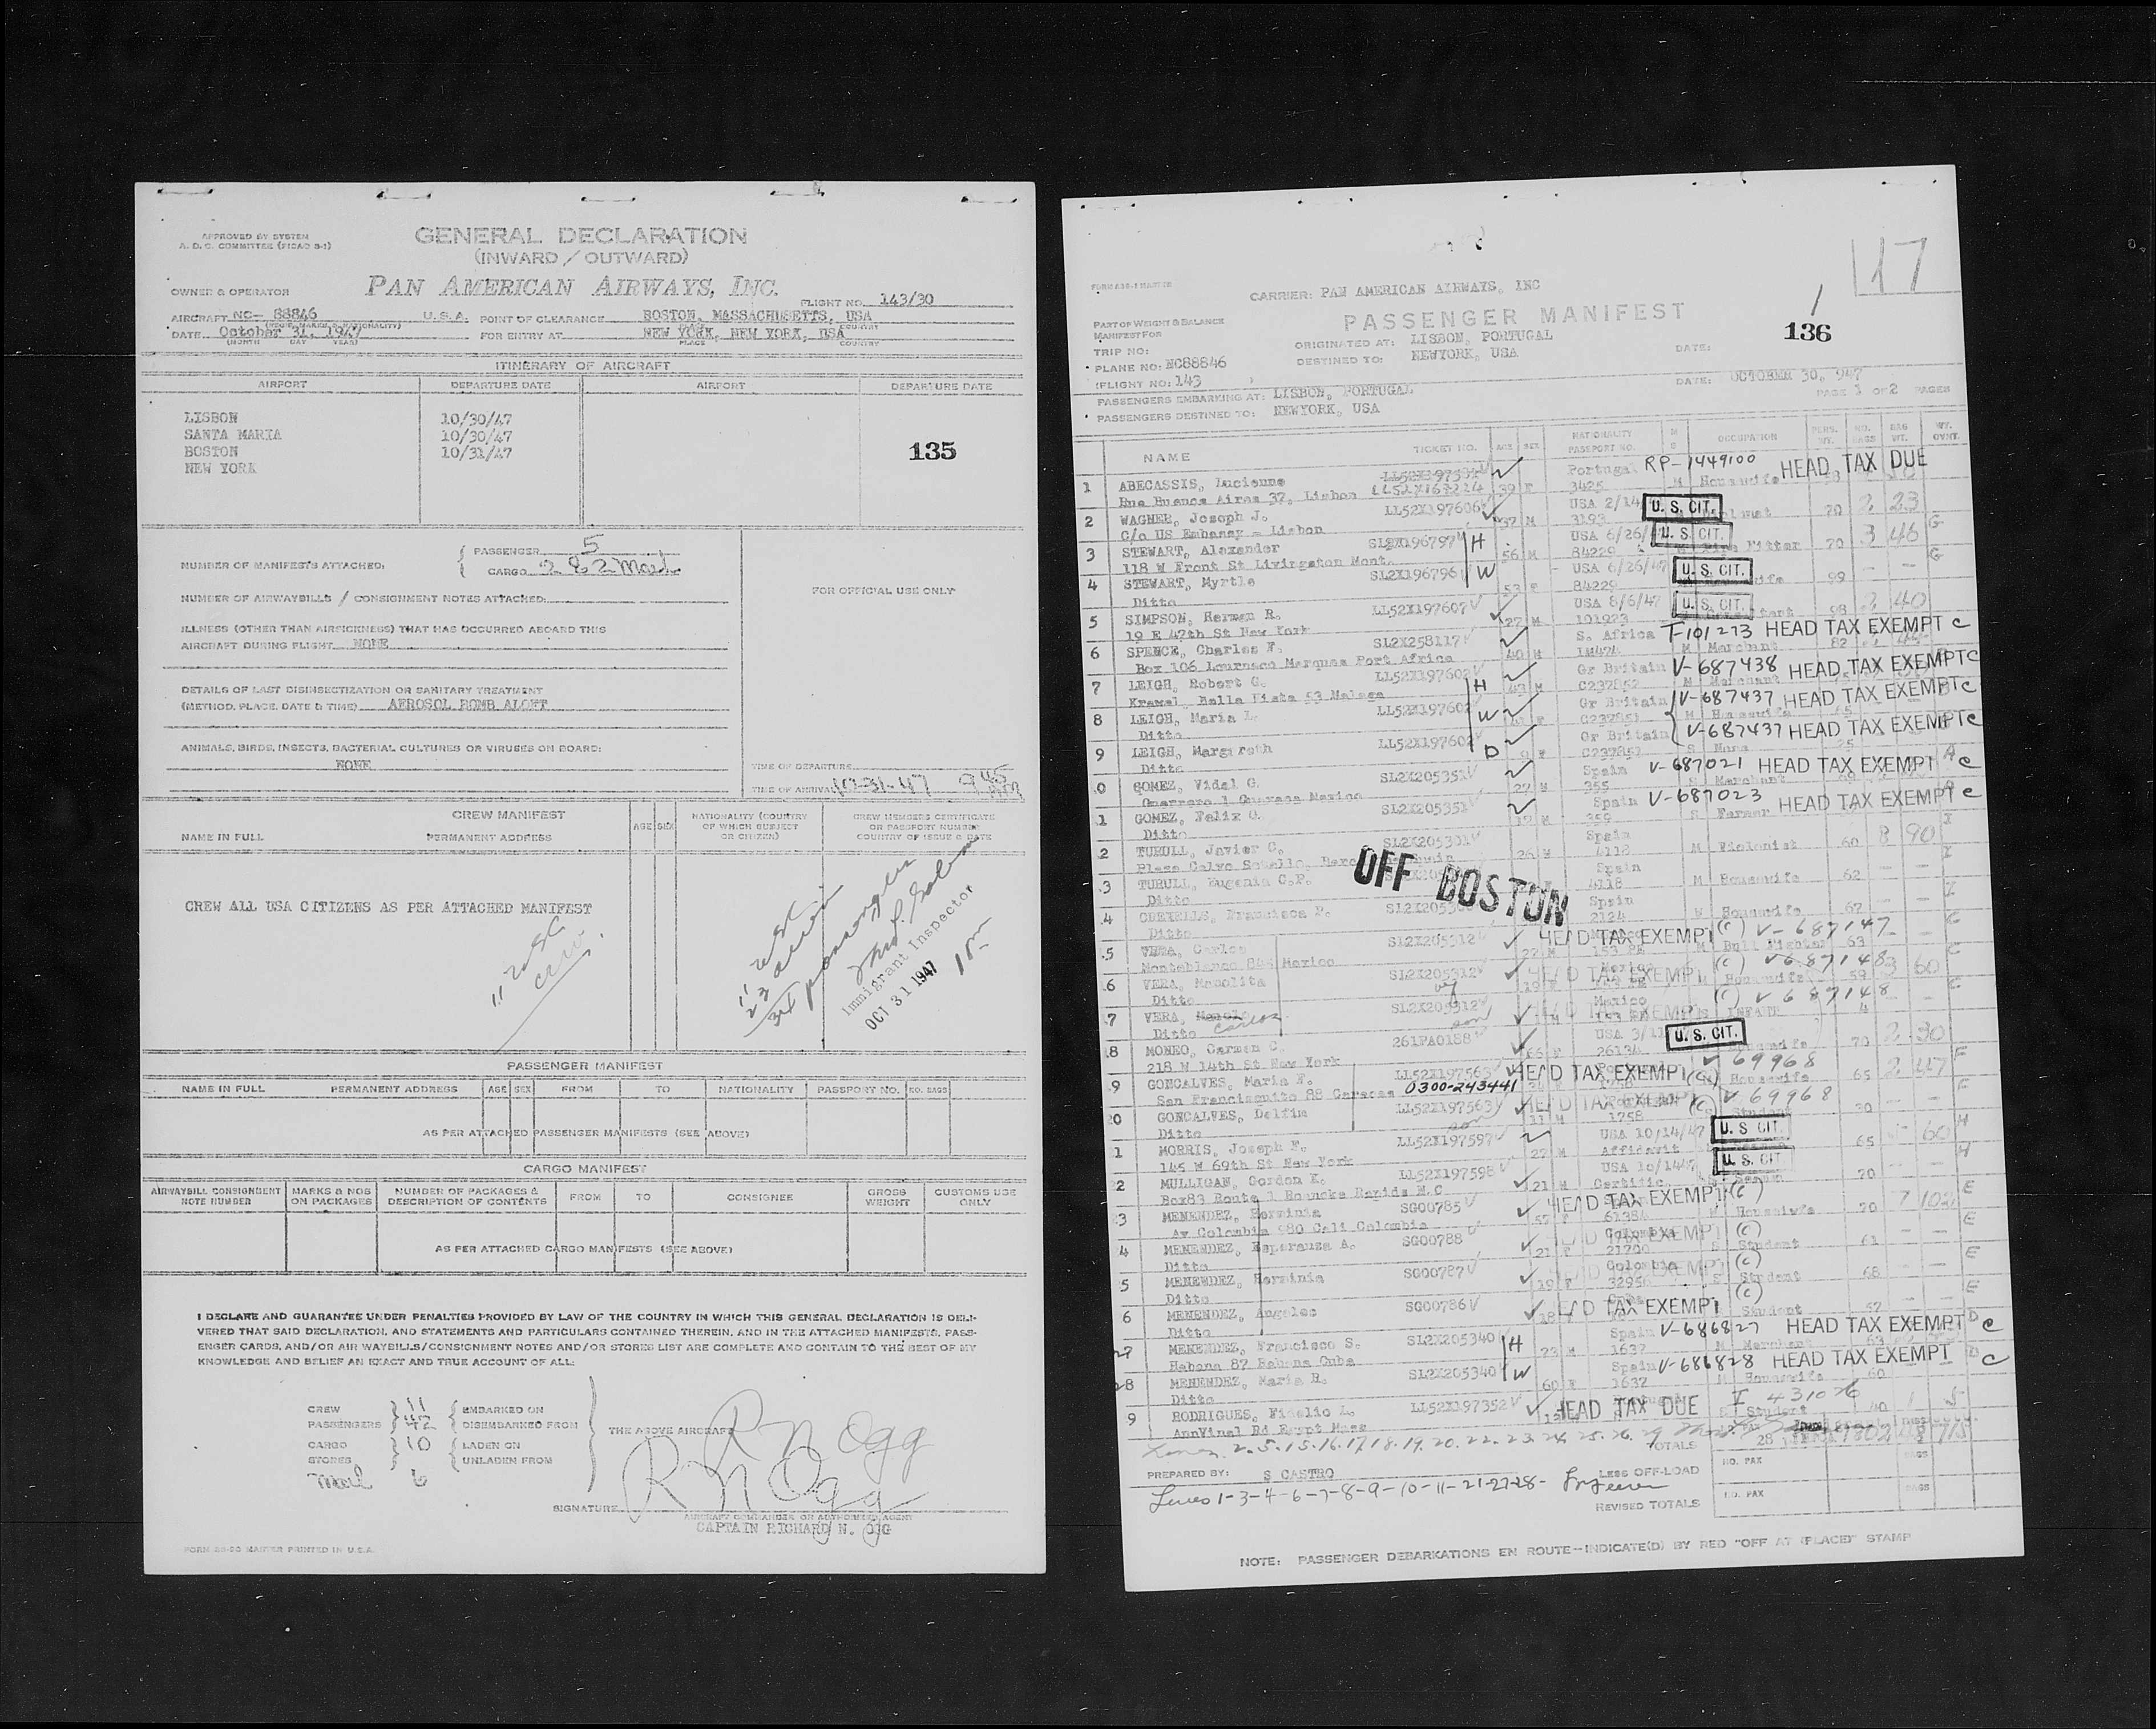 APPROVED BY SYSTEM
A. D. C. COMMITTEE (FICAO 8-1)
GENERAL DECLARATION
(INWARD / OUTWARD)
PAN AMERICAN AIRWAYS, INC.
OWNER & OPERATOR
FLIGHT NO. 143/30
AIRCRAFT NC- 88846 U.S.A. POINT OF CLEARANCE BOSTON, MASSACHUSETTS, USA
DATE October 31, 1947 FOR ENTRY AT NEW YORK, NEW YORK, USA
(MONTH DAY YEAR) PLACE COUNTRY
ITINERARY OF AIRCRAFT
AIRPORT DEPARTURE DATE AIRPORT DEPARTURE DATE
LISBON 10/30/47
SANTA MARIA 10/30/47
BOSTON 10/31/47
NEW YORK
135
NUMBER OF MANIFESTS ATTACHED: PASSENGER 5
CARGO 2 & 2 Mail
NUMBER OF AIRWAYBILLS / CONSIGNMENT NOTES ATTACHED:
FOR OFFICIAL USE ONLY
ILLNESS (OTHER THAN AIRSICKNESS) THAT HAS OCCURRED ABOARD THIS
AIRCRAFT DURING FLIGHT NONE
DETAILS OF LAST DISINSECTIZATION OR SANITARY TREATMENT
(METHOD, PLACE, DATE & TIME) AEROSOL BOMB ALOFT
ANIMALS, BIRDS, INSECTS, BACTERIAL CULTURES OR VIRUSES ON BOARD:
NONE
TIME OF DEPARTURE
TIME OF ARRIVAL 10-31-47 9 45
CREW MANIFEST
NAME IN FULL PERMANENT ADDRESS AGE SEX
NATIONALITY (COUNTRY OF WHICH SUBJECT OR CITIZEN)
CREW MEMBERS CERTIFICATE OR PASSPORT NUMBER COUNTRY OF ISSUE & DATE
CREW ALL USA CITIZENS AS PER ATTACHED MANIFEST
11 usc crew
11 usc
23 alien
34 passengers
Immigrant Inspector
OCT 31 1947
PASSENGER MANIFEST
NAME IN FULL PERMANENT ADDRESS AGE SEX FROM TO NATIONALITY PASSPORT NO. NO. BAGS
AS PER ATTACHED PASSENGER MANIFESTS (SEE ABOVE)
CARGO MANIFEST
AIRWAYBILL CONSIGNMENT NOTE NUMBER MARKS & NOS ON PACKAGES NUMBER OF PACKAGES & DESCRIPTION OF CONTENTS FROM TO CONSIGNEE GROSS WEIGHT CUSTOMS USE ONLY
AS PER ATTACHED CARGO MANIFESTS (SEE ABOVE)
I DECLARE AND GUARANTEE UNDER PENALTIES PROVIDED BY LAW OF THE COUNTRY IN WHICH THIS GENERAL DECLARATION IS DELI-
VERED THAT SAID DECLARATION, AND STATEMENTS AND PARTICULARS CONTAINED THEREIN, AND IN THE ATTACHED MANIFESTS, PASS-
ENGER CARDS, AND/OR AIR WAYBILLS/CONSIGNMENT NOTES AND/OR STORES LIST ARE COMPLETE AND CONTAIN TO THE BEST OF MY
KNOWLEDGE AND BELIEF AN EXACT AND TRUE ACCOUNT OF ALL:
CREW 11 EMBARKED ON
PASSENGERS 42 DISEMBARKED FROM
CARGO 10 LADEN ON
STORES UNLADEN FROM
Mail 6
THE ABOVE AIRCRAFT
R N Ogg
SIGNATURE R N Ogg
AIRCRAFT COMMANDER OR AUTHORIZED AGENT
CAPTAIN RICHARD N. OGG
FORM 80-50 MASTER PRINTED IN U.S.A.
17
CARRIER: PAN AMERICAN AIRWAYS, INC
PASSENGER MANIFEST
136
PART OF WEIGHT & BALANCE
MANIFEST FOR
TRIP NO:
ORIGINATED AT: LISBON, PORTUGAL
DATE:
PLANE NO: NC88846 DESTINED TO: NEWYORK, USA
FLIGHT NO: 143
PASSENGERS EMBARKING AT: LISBON, PORTUGAL DATE: OCTOBER 30, 947
PASSENGERS DESTINED TO: NEWYORK, USA PAGE 1 OF 2 PAGES
NAME TICKET NO. AGE SEX NATIONALITY PASSPORT NO. M S OCCUPATION PERS. WT. NO. BAGS BAG WT. WT. OVNT.
1 ABECASSIS, Lucienne 39 F Portugal RP-1449100 HEAD TAX DUE
Rua Buenos Aires 37, Lisbon 3425 M Housewife
2 WAGNER, Joseph J. LL52X197606 37 M USA 2/14 U. S. CIT. 70 2 23
C/o US Embassy - Lisbon 3193
3 STEWART, Alexander SL2X196797 H 56 M USA 6/26/ U. S. CIT. Fitter 70 3 46 G
118 W Front St Livingston Mont. 84229
4 STEWART, Myrtle SL2X196796 W 53 F USA 6/26/47 U. S. CIT. 99 G
Ditto 84229
5 SIMPSON, Herman R. LL52X197607 27 M USA 8/6/47 U. S. CIT. 98 2 40
19 E 47th St New York 101923
6 SPENCE, Charles F. SL2X258117 40 M S. Africa T-101273 HEAD TAX EXEMPT C
Box 106 Lourenco Marques Port Africa M Merchant 82
7 LEIGH, Robert G. LL52X197602 H 43 M Gr Britain V-687438 HEAD TAX EXEMPT C
Bella Vista 53 Malaga C237852 M Merchant
8 LEIGH, Maria L. LL52X197602 W F Gr Britain V-687437 HEAD TAX EXEMPT C
Ditto C237851 M Housewife
9 LEIGH, Margareth LL52X197602 D F Gr Britain V-687437 HEAD TAX EXEMPT C
Ditto C237851 S None 25
0 GOMEZ, Vidal G. SL2X205351 27 M Spain V-687021 HEAD TAX EXEMPT C
Guerrero 1 Mexico 355 S Merchant
1 GOMEZ, Felix O. SL2X205351 17 M Spain V-687023 HEAD TAX EXEMPT C
Ditto 359 S Farmer
2 TURULL, Javier C. SL2X205301 26 M Spain 4118 M Violonist 60 8 90 I
Plaza Calvo Sotello,
3 TURULL, Eugenia C.P. Spain 4118 M Housewife 62 I
Ditto
OFF BOSTON
4 Francisca P. Spain 2124 W Housewife 67 I
Ditto
5 VERA, Carlos SL2X205312 27 M HEAD TAX EXEMPT (C) V-687147 M Bull Fighter 63 C
Mexico
6 VERA, Manolita SL2X205312 19 HEAD TAX EXEMPT (C) V 687148 Housewife 59 3 60 C
Ditto
7 VERA, Carlos SL2X205312 Mexico HEAD TAX EXEMPT (C) V 687148 INFANT 4 C
Ditto
8 MONEO, Carmen C. 261PA0188 66 F USA 3/11 U. S. CIT. Housewife 70 2 30
218 W 14th St New York 26134
9 GONCALVES, Maria F. LL52X197563 HEAD TAX EXEMPT (C) V 69968 Housewife 65 2 47 F
San Francisquito 88 Caracas 0300-243441
20 GONCALVES, Delfim LL52X197563 11 M HEAD TAX EXEMPT (C) V 69968 Student 30 F
Ditto 1758
1 MORRIS, Joseph F. LL52X197597 27 M USA 10/14/47 U. S. CIT. 65 60 H
145 W 69th St New York Affidavit
2 MULLIGAN, Gordon E. LL52X197598 21 M USA 10/1447 U. S. CIT. Seaman 70 H
Box83 Route 1 Roanoke Rapids N.C Certific.
3 MENENDEZ, Herminia SG00785 57 F HEAD TAX EXEMPT (C) Housewife 70 7 102 E
Av Colombia 980 Cali Colombia 61384
4 MENENDEZ, Esperanza A. SG00788 21 F Colombia HEAD TAX EXEMPT (C) S Student 61 E
Ditto 21700
5 MENENDEZ, Herminia SG00787 19 F Colombia HEAD TAX EXEMPT (C) S Student 68 E
Ditto 32956
6 MENENDEZ, Angeles SG00786 18 F HEAD TAX EXEMPT (C) Student 57 E
Ditto
27 MENENDEZ, Francisco S. SL2X205340 H 23 M Spain V-686827 HEAD TAX EXEMPT C
Habana 87 Habana Cuba 1637 M Merchant 63 D
28 MENENDEZ, Maria R. SL2X205340 W 60 F Spain V-686828 HEAD TAX EXEMPT C
Ditto 1637 M Housewife 60 D
9 RODRIGUES, Fidelio L. LL52X197352 HEAD TAX DUE I 431076 S Student 40 1 5
AnnVinal Rd Egypt Mass
2. 5. 15. 16. 17. 18. 19. 20. 22. 23. 24. 25. 26. 29
TOTALS 28 1802 48 715
PREPARED BY: S CASTRO
LESS OFF-LOAD NO. PAX BAGS
Lines 1-3-4-6-7-8-9-10-11-21-27-28-
REVISED TOTALS NO. PAX BAGS
NOTE: PASSENGER DEBARKATIONS EN ROUTE—INDICATE(D) BY RED "OFF AT (PLACE)" STAMP